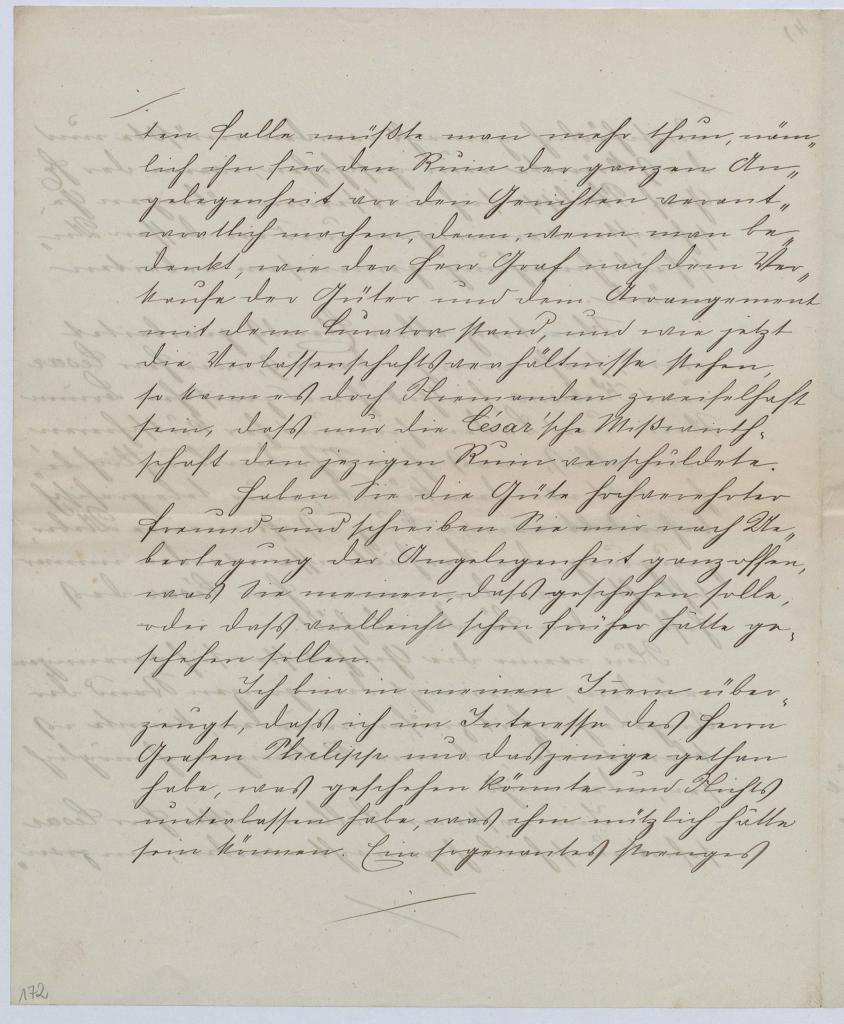 ten Falle müßte man mehr thun, näm„
lich ihn für den Ruin der ganzen An„
gelegenheit vor den Gerichten verant„
wortlich machen, denn, wenn man be„
denkt, wie der Herr Graf nach dem Ver„
kaufe der Güter und dem Arrangement
mit dem Curator stand, und wie jetzt
die Verlassenschaftsverhältnisse stehen,
so kann es doch Niemanden zweifelhaft
sein, dass nur die César'sche Mißwirth„
schaft den jezigen Ruin verschuldete.
Haben Sie die Güte hochverehrter
Freund und schreiben Sie mir nach Ue„
berlegung der Angelegenheit ganz offen,
was Sie meinen, dass geschehen solle,
oder dass vielleicht schon früher hätte ge„
schehen sollen.
Ich bin in meinen Innern über„
zeugt, dass ich im Interesse des Herrn
Grafen Philipp nur dasjenige gethan
habe, was geschehen könnte und Nichts
unterlassen habe, was ihm nützlich hätte
sein können. Ein sogenantes strenges
172